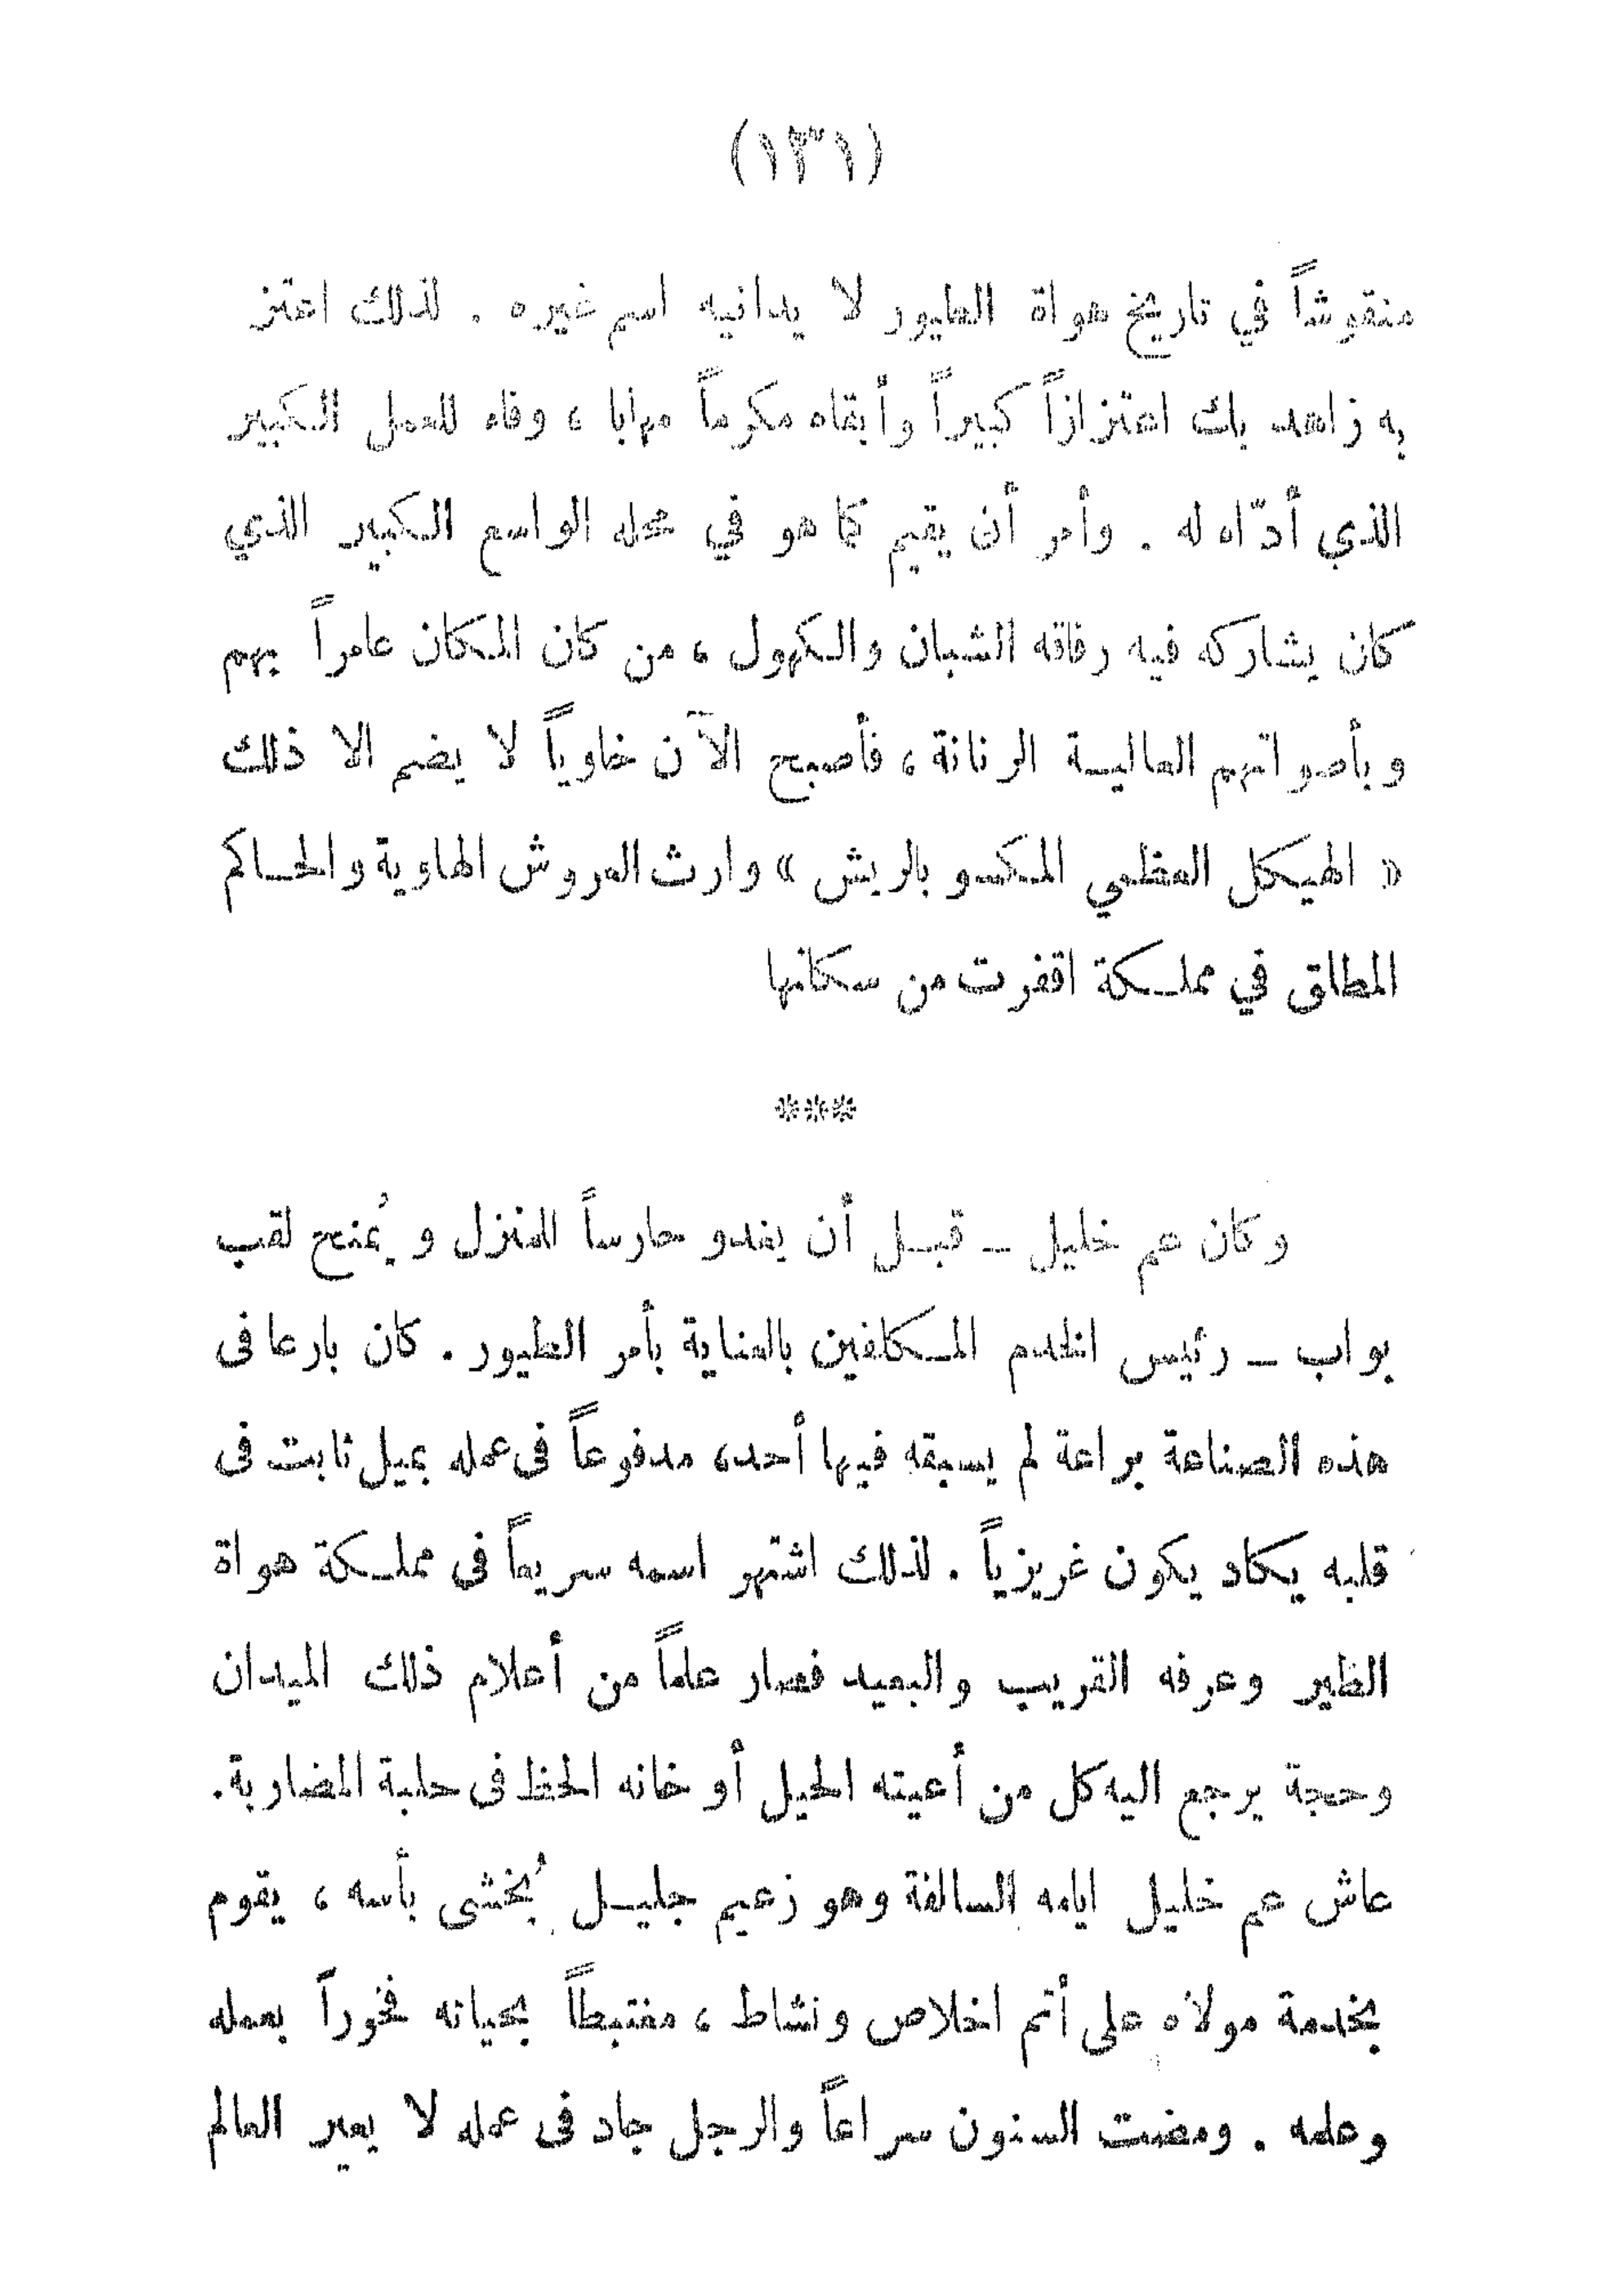 (١٣١)
منقوشاً في تاريخ هواة الطيور لا يدانيه اسم غيره . لذلك اعتز
به زاهد بك اعتزازاً كبيراً وأبقاه مكرماً مهابا ، وفاء للعمل الكبير
الذي أدّاه له . وأمر أن يقيم كما هو في محله الواسع الكبير الذي
كان يشاركه فيه رفاقه الشبان والكهول ، من كان المكان عامراً بهم
وبأصواتهم العالية الرنانة ، فأصبح الآن خاوياً لا يضم الا ذلك
« الهيكل العظمي المكسو بالريش » وارث العروش الهاوية والحاكم
المطلق في مملكة اقفرت من سكانها
***
وكان عم خليل ـ قبل أن يغدو حارساً للمنزل ويُمنح لقب
بواب ـ رئيس الخدم المكلفين بالعناية بأمر الطيور . كان بارعا فى
هذه الصناعة براعة لم يسبقه فيها أحد ، مدفوعاً فى عمله بميل ثابت فى
قلبه يكاد يكون غريزياً . لذلك اشتهر اسمه سريعاً فى مملكة هواة
الطير وعرفه القريب والبعيد فصار علماً من أعلام ذلك الميدان
وحجة يرجع اليه كل من أعيته الحيل أو خانه الحظ فى حلبة المضاربة.
عاش عم خليل ايامه السالفة وهو زعيم جليل يُخشى بأسه ، يقوم
بخدمة مولاه على أتم اخلاص ونشاط ، مغتبطاً بحياته فخوراً بعمله
وعلمه . ومضت السنون سراعاً والرجل جاد فى عمله لا يعير العالم